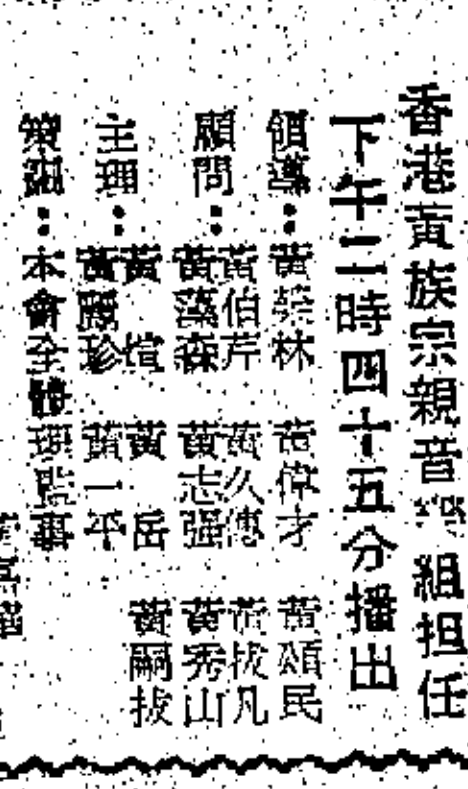 香港黃族宗親音樂組担任
下午二時四十五分播出
領導：黃榮林 黃偉才 黃頌民
顧問：黃伯芹 黃久傳 黃拔凡
黃藻森 黃志强 黃秀山
主理：黃煊 黃岳 黃嗣拔
黃麗珍 黃一平
策劃：本會全體理監事